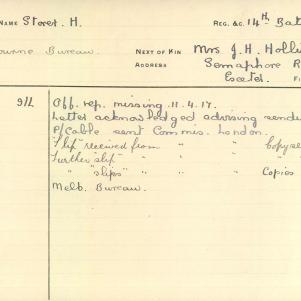 NAME Storet. H. REG. &C. 14th Bat
ourne Bureau. NEXT OF KIN Mrs J. H. Holli
ADDRESS Semaphore R
Exeter. F
9/11 Off. rep. missing. 11.4.17.
Letter acknowledged advising sendi
P/Cable sent Commis. London.
"Slip" received from " " Copy se
Further "slip" " "
" "slips" " " Copies
Melb. Bureau.